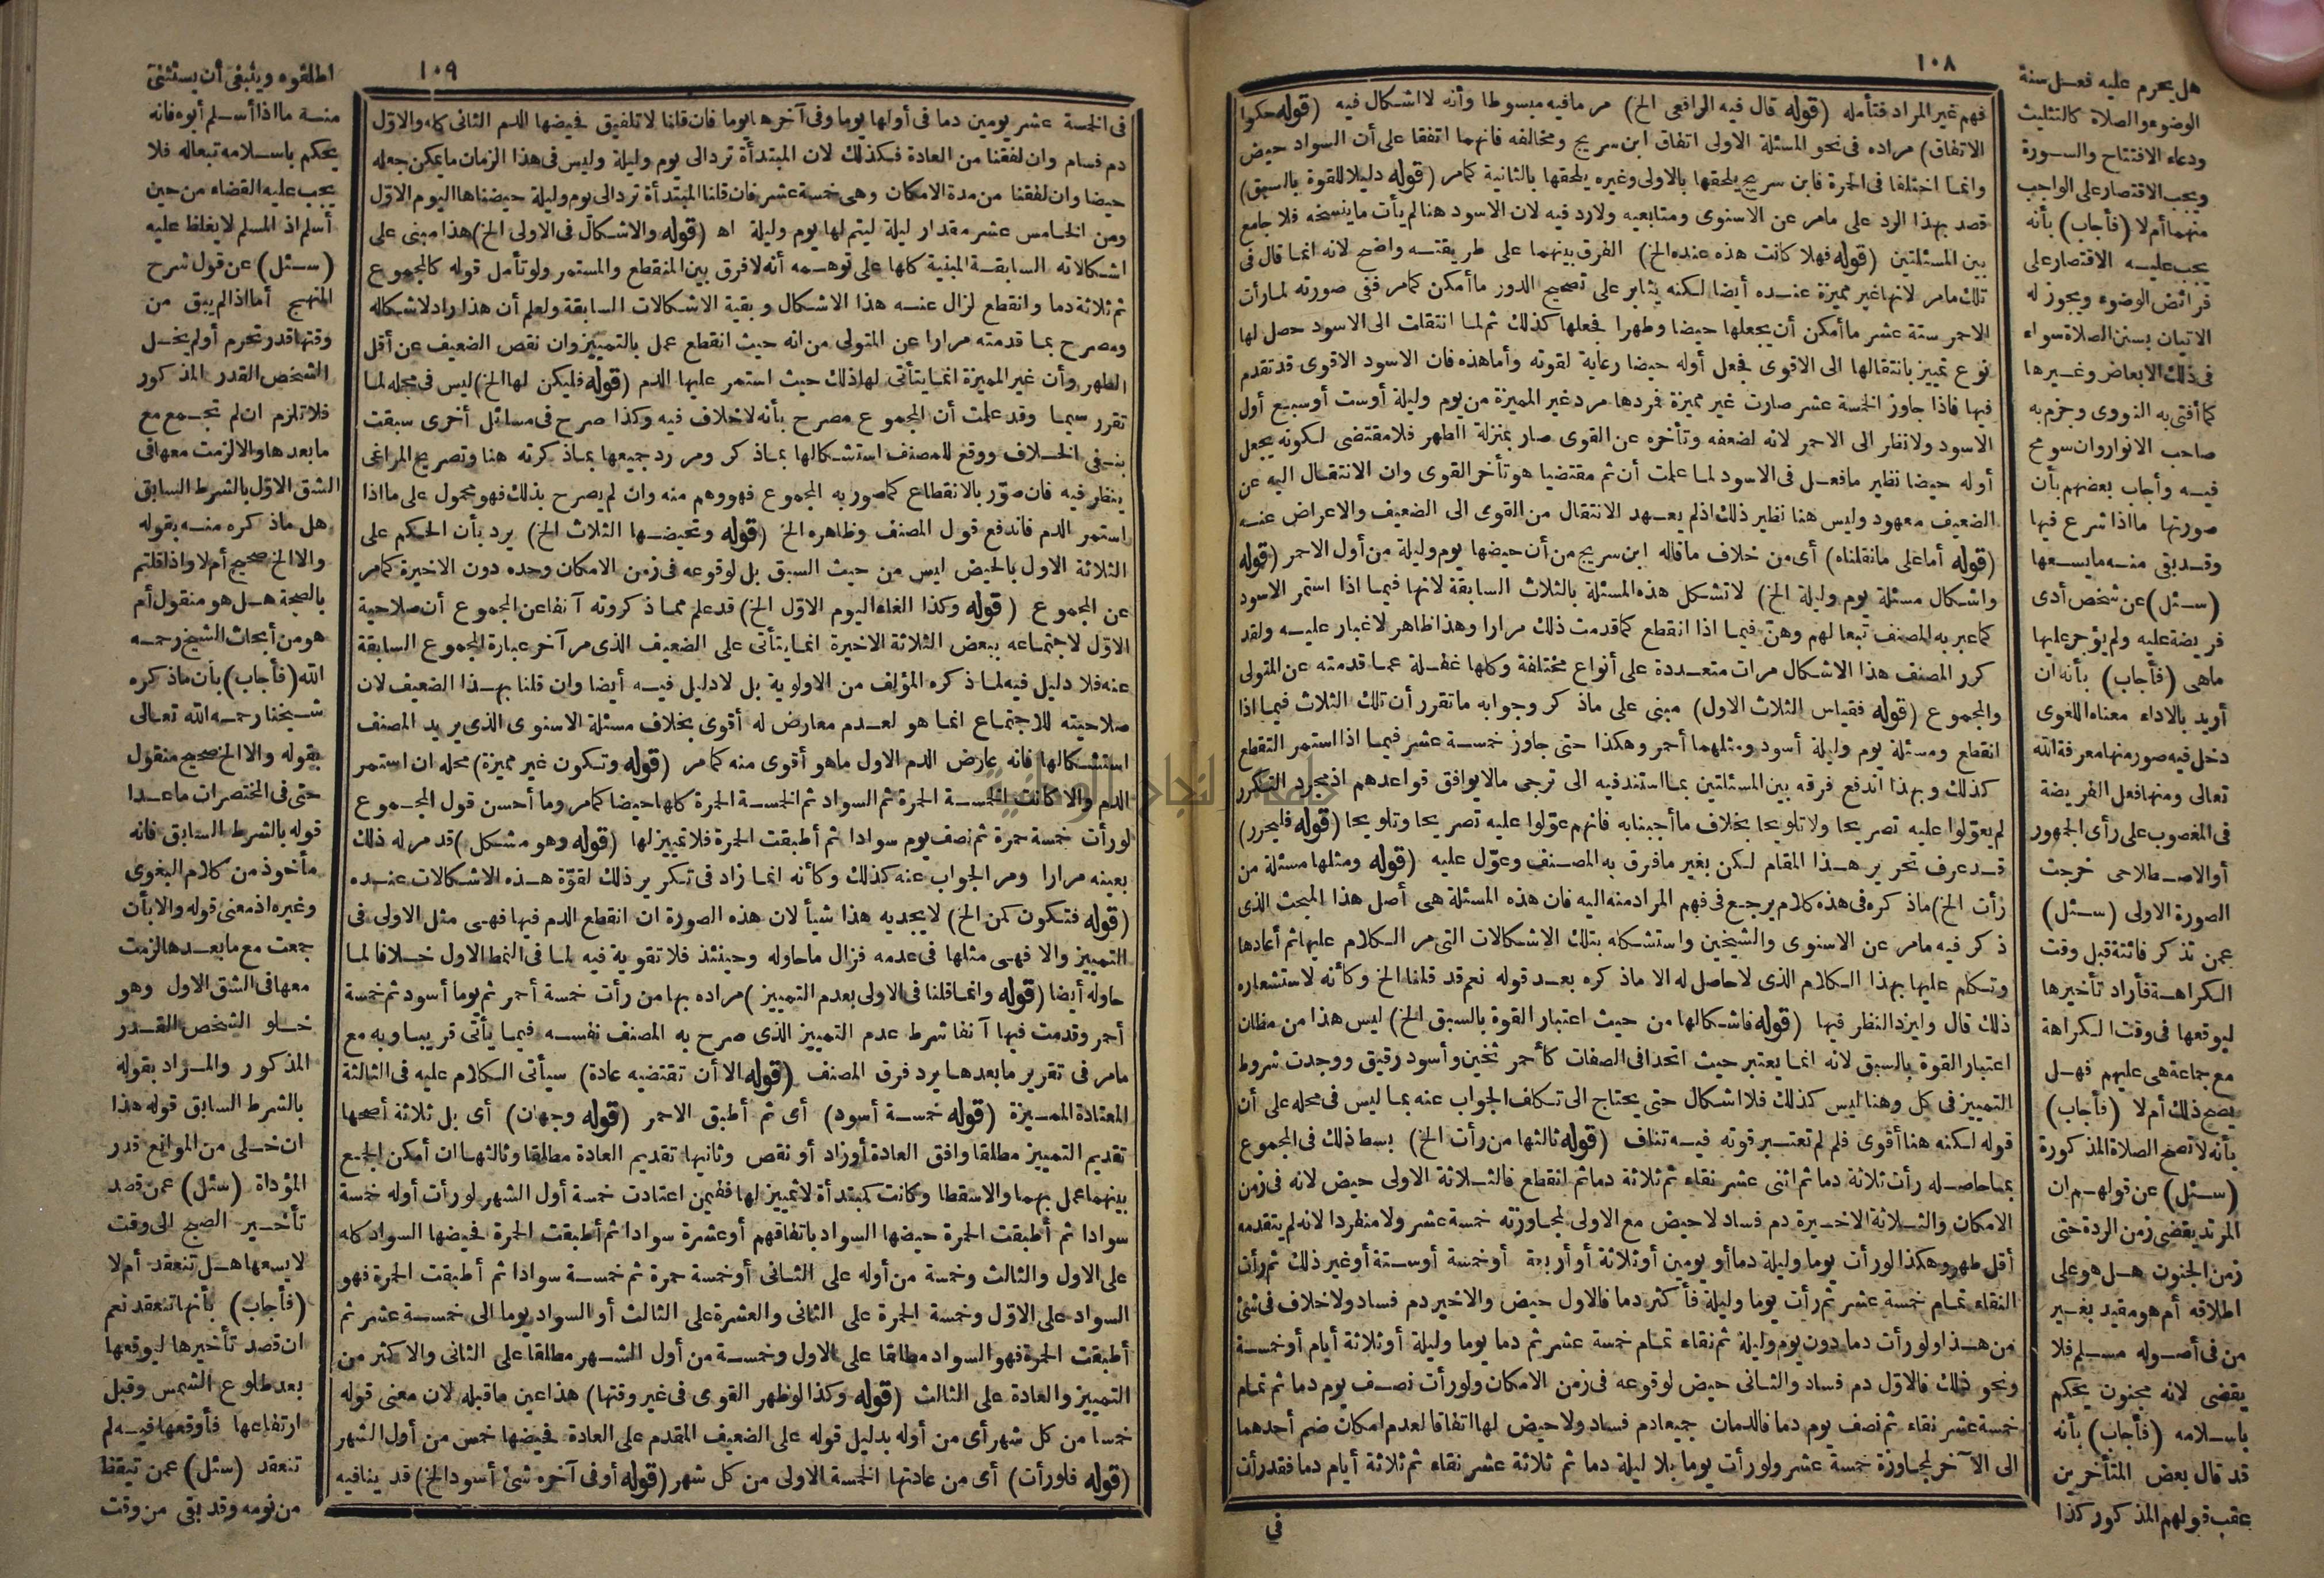 ١٠٨
فهم غير المراد فتأمله (قوله قال فيه الرافعى الخ) مر مافيه مبسوطا وأنه لا اشكال فيه (قوله حكوا
الاتفاق) مراده فى نحو المسئلة الاولى اتفاق ابن سريج ومخالفه فانهما اتفقا على أن السواد حيض
وانما اختلفا فى الحمرة فابن سريج يلحقها بالاولى وغيره يلحقها بالثانية كمامر (قوله دليلا للقوة بالسبق)
قصد بهذا الرد على مامر عن الاسنوى ومتابعيه ولا رد فيه لان الاسود هنا لم يأت ما ينسخه فلا جامع
بين المسئلتين (قوله فهلا كانت هذه عنده الخ) الفرق بينهما على طريقته واضح لانه انما قال فى
تلك مامر لانها غير مميزة عنده أيضا لكنه يثابر على تصحيح الدور ما أمكن كمامر ففى صورته لما رأت
الاحمر ستة عشر ما أمكن أن يجعلها حيضا وطهرا فجعلها كذلك ثم لما انتقلت الى الاسود حصل لها
نوع تمييز بانتقالها الى الاقوى فجعل أوله حيضا رعاية لقوته وأما هذه فان الاسود الاقوى قد تقدم
فيها فاذا جاوز الخمسة عشر صارت غير مميزة فردها مرد غير المميزة من يوم وليلة أوست أوسبع أول
الاسود ولا نظر الى الاحمر لانه لضعفه وتأخره عن القوى صار بمنزلة الطهر فلا مقتضى لكونه يجعل
أوله حيضا نظير ما فعل فى الاسود لما علمت أن ثم مقتضيا هو تأخر القوى وان الانتقال اليه عن
الضعيف معهود وليس هنا نظير ذلك اذ لم يعهد الانتقال من القوى الى الضعيف والاعراض عنه
(قوله أما على ما نقلناه) أى من خلاف ما قاله ابن سريج من أن حيضها يوم وليلة من أول الاحمر (قوله
واشكال مسئلة يوم وليلة الخ) لا تشكل هذه المسئلة بالثلاث السابقة لانها فيما اذا استمر الاسود
كما عبر به المصنف تبعا لهم وهن فيما اذا انقطع كما قدمت ذلك مرارا وهذا ظاهر لا غبار عليه ولقد
كرر المصنف هذا الاشكال مرات متعددة على أنواع مختلفة وكلها غفلة عما قدمته عن المتولى
والمجموع (قوله فقياس الثلاث الاول) مبنى على ما ذكر وجوابه ما تقرر أن تلك الثلاث فيما اذا
انقطع ومسئلة يوم وليلة أسود ومثلهما أحمر وهكذا حتى جاوز خمسة عشر فيما اذا استمر التقطع
كذلك وبهذا اندفع فرقه بين المسئلتين بما استند فيه الى ترجى ما لا يوافق قواعدهم اذ مجرد التكرر
لم يعولوا عليه تصريحا ولا تلويحا بخلاف ما أجبنا به فانهم عولوا عليه تصريحا وتلويحا (قوله فليحرر)
قد عرف تحرير هذا المقام لكن بغير ما فرق به المصنف وعول عليه (قوله ومثلها مسئلة من
رأت الخ) ما ذكره فى هذه كلام يرجع فى فهم المراد منه اليه فان هذه المسئلة هى أصل هذا المبحث الذى
ذكر فيه مامر عن الاسنوى والشيخين واستشكاله بتلك الاشكالات التى مر الكلام عليها ثم أعادها
وتكلم عليها بهذا الكلام الذى لا حاصل له الا ما ذكره بعد قوله نعم قد قلنا الخ وكأنه لاستشعاره
ذلك قال وليزد النظر فيها (قوله فاشكالها من حيث اعتبار القوة بالسبق الخ) ليس هذا من مظان
اعتبار القوة بالسبق لانه انما يعتبر حيث اتحدا فى الصفات كأحمر ثخين وأسود رقيق ووجدت شروط
التمييز فى كل وهنا ليس كذلك فلا اشكال حتى يحتاج الى تكلف الجواب عنه بما ليس فى محله على أن
قوله لكنه هنا أقوى فلم لم تعتبر قوته فيه تناف (قوله ثالثها من رأت الخ) بسط ذلك فى المجموع
بما حاصله رأت ثلاثة دما ثم اثنى عشر نقاء ثم ثلاثة دما ثم انقطع فالثلاثة الاولى حيض لانه فى زمن
الامكان والثلاثة الاخيرة دم فساد لا حيض مع الاولى لمجاوزته خمسة عشر ولا منفردا لانه لم يتقدمه
أقل طهر وهكذا لو رأت يوما وليلة دما أو يومين أو ثلاثة أو أربعة أو خمسة أو ستة أو غير ذلك ثم رأت
النقاء تمام خمسة عشر ثم رأت يوما وليلة فأكثر دما فالاول حيض والاخير دم فساد ولا خلاف فى شئ
من هذا ولو رأت دما دون يوم وليلة ثم نقاء تمام خمسة عشر ثم دما يوما وليلة أو ثلاثة أيام أو خمسة
ونحو ذلك فالاول دم فساد والثانى حيض لوقوعه فى زمن الامكان ولو رأت نصف يوم دما ثم تمام
خمسة عشر نقاء ثم نصف يوم دما فالدمان جميعا دم فساد ولا حيض لها اتفاقا لعدم امكان ضم أحدهما
الى الآخر لمجاوزة خمسة عشر ولو رأت يوما بلا ليلة دما ثم ثلاثة عشر نقاء ثم ثلاثة أيام دما فقد رأت
فى
هل يحرم عليه فعل سنة
الوضوء والصلاة كالتثليث
ودعاء الافتتاح والسورة
ويجب الاقتصار على الواجب
منهما أم لا (فأجاب) بأنه
يجب عليه الاقتصار على
فرائض الوضوء ويجوز له
الاتيان بسنن الصلاة سواء
فى ذلك الابعاض وغيرها
كما أفتى به النووى وجزم به
صاحب الانوار وان سومح
فيه وأجاب بعضهم بأن
صورتها ما اذا شرع فيها
وقد بقى منه ما يسعها
(سئل) عن شخص أدى
فريضة عليه ولم يؤجر عليها
ماهى (فأجاب) بأنه ان
أريد بالاداء معناه اللغوى
دخل فيه صور منها معرفة الله
تعالى ومنها فعل الفريضة
فى المغصوب على رأى الجمهور
أو الاصطلاحى خرجت
الصورة الاولى (سئل)
عمن تذكر فائتة قبل وقت
الكراهة فأراد تأخيرها
ليوقعها فى وقت الكراهة
مع جماعة هى عليهم فهل
يصح ذلك أم لا (فأجاب)
بأنه لا تصح الصلاة المذكورة
(سئل) عن قولهم ان
المرتد يقضى زمن الردة حتى
زمن الجنون هل هو على
اطلاقه أم هو مقيد بغير
من فى أصوله مسلم فلا
يقضى لانه مجنون يحكم
باسلامه (فأجاب) بأنه
قد قال بعض المتأخرين
عقب قولهم المذكور كذا
١٠٩
فى الخمسة عشر يومين دما فى أولها يوما وفى آخرها يوما فان قلنا لا تلفيق فحيضها الدم الثانى كله والاول
دم فساد وان لفقنا من العادة فكذلك لان المبتدأة ترد الى يوم وليلة وليس فى هذا الزمان ما يمكن جعله
حيضا وان لفقنا من مدة الامكان وهى خمسة عشر فان قلنا المبتدأة ترد الى يوم وليلة حيضناها اليوم الاول
ومن الخامس عشر مقدار ليلة ليتم لها يوم وليلة اه (قوله والاشكال فى الاولى الخ) هذا مبنى على
اشكالاته السابقة المبنية كلها على توهمه أنه لا فرق بين المنقطع والمستمر ولو تأمل قوله كالمجموع
ثم ثلاثة دما وانقطع لزال عنه هذا الاشكال وبقية الاشكالات السابقة ولعلم أن هذا راد لاشكاله
ومصرح بما قدمته مرارا عن المتولى من انه حيث انقطع عمل بالتمييز وان نقص الضعيف عن أقل
الطهر وأن غير المميزة انما يتأتى لها ذلك حيث استمر عليها الدم (قوله فليكن لها الخ) ليس فى محله لما
تقرر سيما وقد علمت أن المجموع مصرح بأنه لا خلاف فيه وكذا صرح فى مسائل أخرى سبقت
بنفى الخلاف ووقع للمصنف استشكالها بما ذكر ومر رد جميعها بما ذكرته هنا وتصريح المراغى
ينظر فيه فان صور بالانقطاع كما صور به المجموع فهو وهم منه وان لم يصرح بذلك فهو محمول على ما اذا
استمر الدم فاندفع قول المصنف وظاهره الخ (قوله وتحيضها الثلاث الخ) يرد بأن الحكم على
الثلاثة الاول بالحيض ليس من حيث السبق بل لوقوعه فى زمن الامكان وحده دون الاخيرة كمامر
عن المجموع (قوله وكذا الغاء اليوم الاول الخ) قد علم مما ذكرته آنفا عن المجموع أن صلاحية
الاول لاجتماعه ببعض الثلاثة الاخيرة انما يتأتى على الضعيف الذى مر آخر عبارة المجموع السابقة
عنه فلا دليل فيه لما ذكره المؤلف من الاولوية بل لا دليل فيه أيضا وان قلنا بهذا الضعيف لان
صلاحيته للاجتماع انما هو لعدم معارض له أقوى بخلاف مسئلة الاسنوى الذى يريد المصنف
استشكالها فانه عارض الدم الاول ما هو أقوى منه كمامر (قوله وتكون غير مميزة) محله ان استمر
الدم والا كانت الخمسة الحمرة ثم السواد ثم الخمسة الحمرة كلها حيضا كمامر وما أحسن قول المجموع
لو رأت خمسة حمرة ثم نصف يوم سوادا ثم أطبقت الحمرة فلا تمييز لها (قوله وهو مشكل) قد مر له ذلك
بعينه مرارا ومر الجواب عنه كذلك وكأنه انما زاد فى تكرير ذلك لقوة هذه الاشكالات عنده
(قوله فتكون كمن الخ) لا يجديه هذا شيأ لان هذه الصورة ان انقطع الدم فيها فهى مثل الاولى فى
التمييز والا فهى مثلها فى عدمه فزال ما حاوله وحينئذ فلا تقوية فيه لما فى النمط الاول خلافا لما
حاوله أيضا (قوله وانما قلنا فى الاولى بعدم التمييز) مراده بها من رأت خمسة أحمر ثم يوما أسود ثم خمسة
أحمر وقدمت فيها آنفا شرط عدم التمييز الذى صرح به المصنف نفسه فيما يأتى قريبا وبه مع
مامر فى تقرير ما بعدها يرد فرق المصنف (قوله الا أن تقتضيه عادة) سيأتى الكلام عليه فى الثالثة
المعتادة المميزة (قوله خمسة أسود) أى ثم أطبق الاحمر (قوله وجهان) أى بل ثلاثة أصحها
تقديم التمييز مطلقا وافق العادة أو زاد أو نقص وثانيها تقديم العادة مطلقا وثالثها ان أمكن الجمع
بينهما عمل بهما والا سقطا وكانت كمبتدأة لا تمييز لها ففيمن اعتادت خمسة أول الشهر لو رأت أوله خمسة
سوادا ثم أطبقت الحمرة حيضها السواد باتفاقهم أو عشرة سوادا ثم أطبقت الحمرة فحيضها السواد كله
على الاول والثالث وخمسة من أوله على الثانى أو خمسة حمرة ثم خمسة سوادا ثم أطبقت الحمرة فهو
السواد على الاول وخمسة الحمرة على الثانى والعشرة على الثالث أو السواد يوما الى خمسة عشر ثم
أطبقت الحمرة فهو السواد مطلقا على الاول وخمسة من أول الشهر مطلقا على الثانى والاكثر من
التمييز والعادة على الثالث (قوله وكذا لو ظهر القوى فى غير وقتها) هذا عين ما قبله لان معنى قوله
خمسا من كل شهر أى من أوله بدليل قوله على الضعيف المقدم على العادة فحيضها خمس من أول الشهر
(قوله فلو رأت) أى من عادتها الخمسة الاولى من كل شهر (قوله أو فى آخره شئ أسود الخ) قد ينافيه
اطلقوه وينبغى أن يستثنى
منه ما اذا أسلم أبوه فانه
يحكم باسلامه تبعا له فلا
يجب عليه القضاء من حين
أسلم اذ المسلم لا يغلظ عليه
(سئل) عن قول شرح
المنهج أما اذا لم يبق من
وقتها قدر تحرم أو لم يخل
الشخص القدر المذكور
فلا تلزم ان لم تجمع مع
ما بعدها والا لزمت معها فى
الشق الاول بالشرط السابق
هل ما ذكره منه بقوله
والا الخ صحيح أم لا واذا قلتم
بالصحة هل هو منقول أم
هو من أبحاث الشيخ رحمه
الله (فأجاب) بأن ما ذكره
شيخنا رحمه الله تعالى
بقوله والا الخ صحيح منقول
حتى فى المختصرات ما عدا
قوله بالشرط السابق فانه
مأخوذ من كلام البغوى
وغيره اذ معنى قوله والا بأن
جمعت مع ما بعدها لزمت
معها فى الشق الاول وهو
خلو الشخص القدر
المذكور والمراد بقوله
بالشرط السابق قوله هذا
ان خلى من الموانع قدر
المؤداة (سئل) عمن قصد
تأخير الصبح الى وقت
لا يسعها هل تنعقد أم لا
(فأجاب) بأنها تنعقد نعم
ان قصد تأخيرها ليوقعها
بعد طلوع الشمس وقبل
ارتفاعها فأوقعها فيه لم
تنعقد (سئل) عمن تيقظ
من نومه وقد بقى من وقت